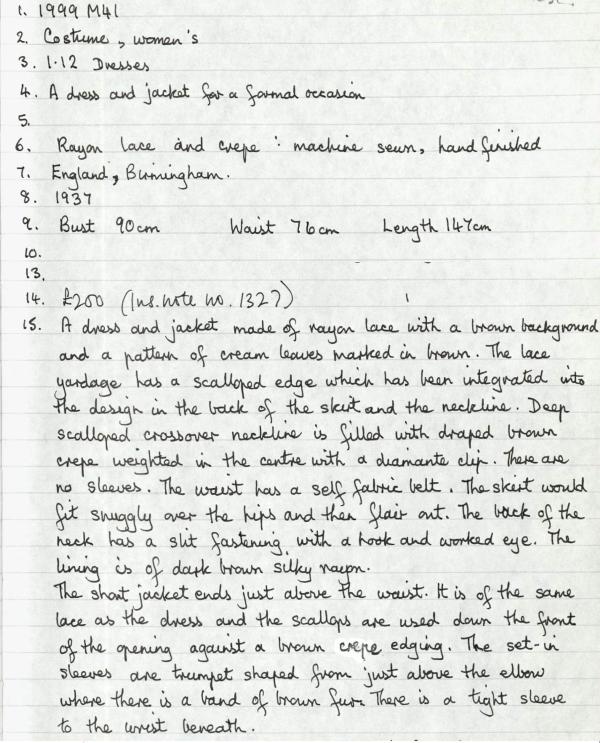 1. 1999 M41
2. Costume, women's
3. 1.12 Dresses
4. A dress and jacket for a formal occasion
5.
6. Rayon lace and crepe : machine sewn, hand finished
7. England, Birmingham.
8. 1937
9. Bust 90cm Waist 76cm Length 147cm
10.
13.
14. £200 (Ins. note no. 1327)
15. A dress and jacket made of rayon lace with a brown background
and a pattern of cream leaves marked in brown. The lace
yardage has a scalloped edge which has been integrated into
the design in the back of the skirt and the neckline. Deep
scalloped crossover neckline is filled with draped brown
crepe weighted in the centre with a diamante clip. There are
no sleeves. The waist has a self fabric belt. The skirt would
fit snuggly over the hips and then flair out. The back of the
neck has a slit fastening with a hook and worked eye. The
lining is of dark brown silky rayon.
The short jacket ends just above the waist. It is of the same
lace as the dress and the scallops are used down the front
of the opening against a brown crepe edging. The set-in
sleeves are trumpet shaped from just above the elbow
where there is a band of brown fur. There is a tight sleeve
to the wrist beneath.